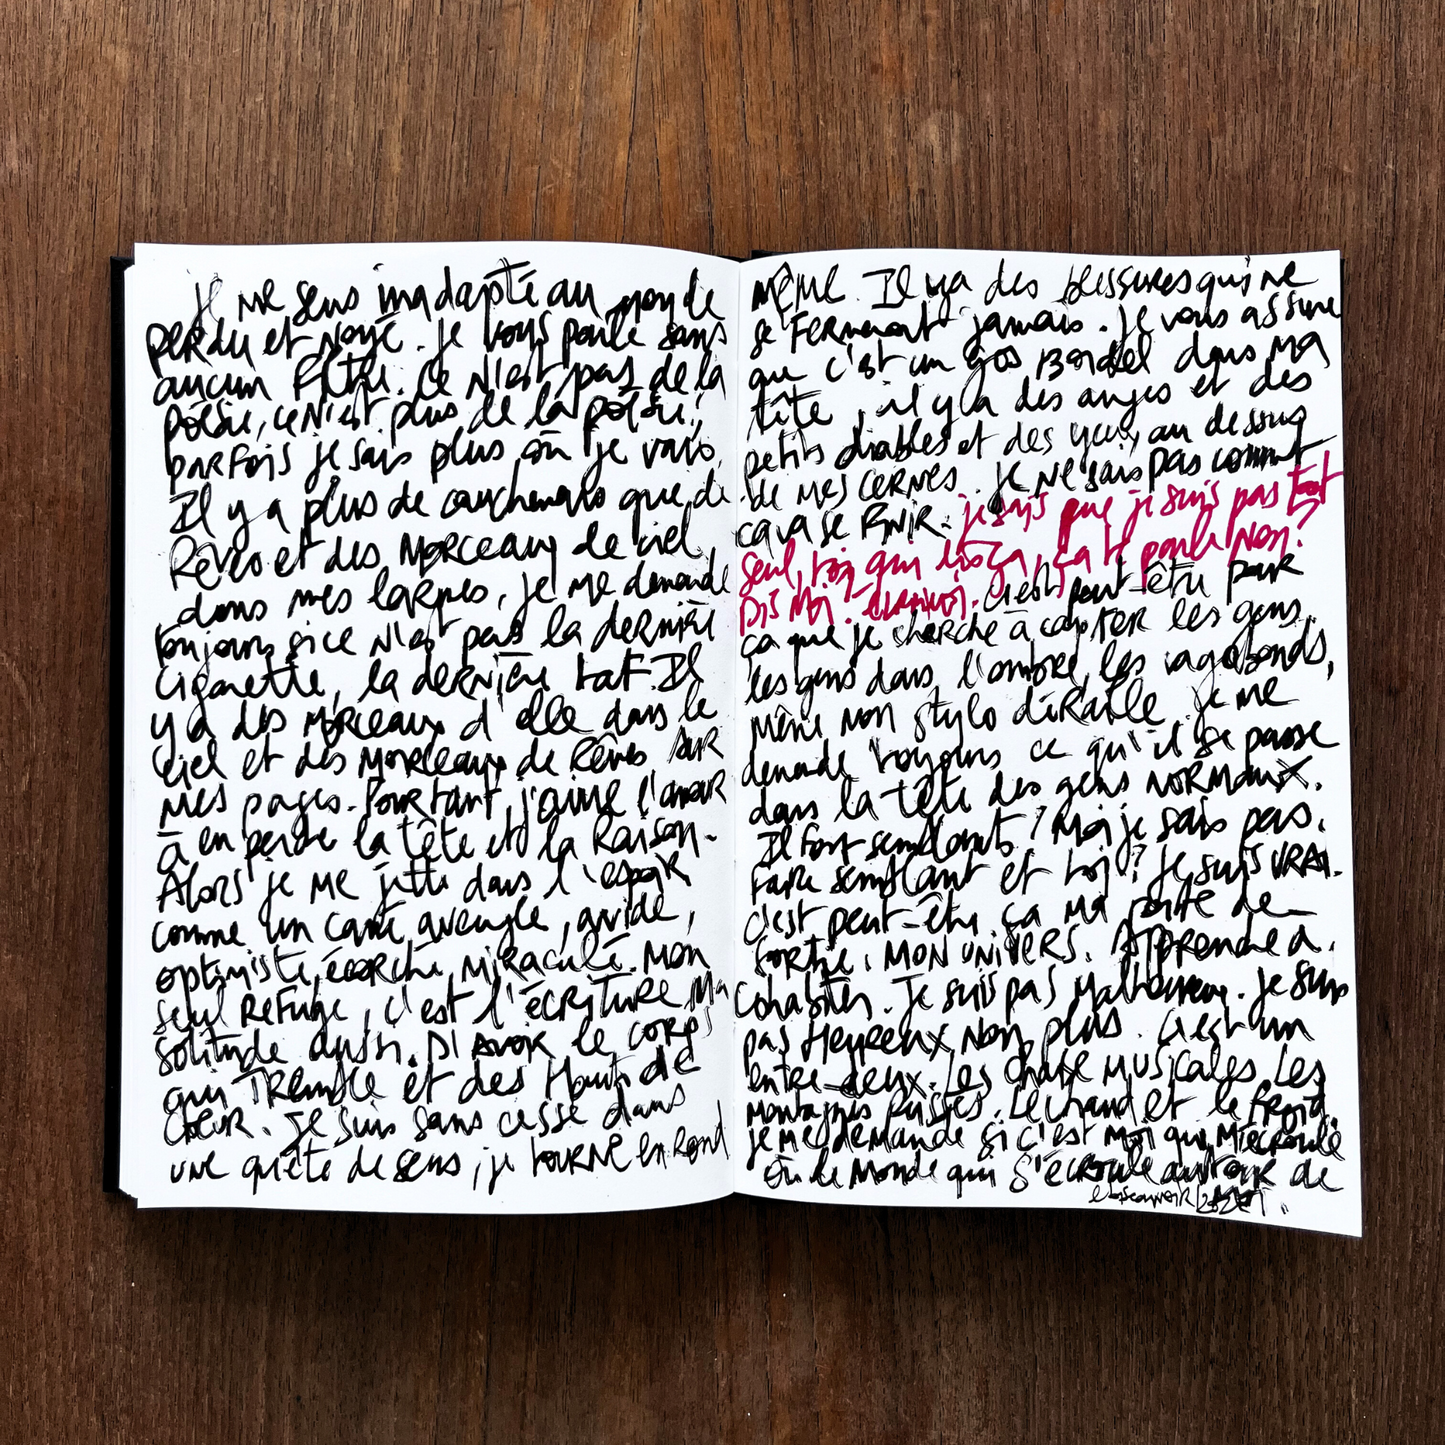 Je me sens inadapté au monde
perdu et noyé. Je vous parle sans
aucun filtre. Ce n'est pas de la
poésie, ce n'est plus de la poésie,
parfois je sais plus où je vais,
Il y a plus de cauchemars que de
Rêves et des MORCEAUX de ciel,
dans mes larmes, je me demande
toujours si ce n'est pas la dernière
cigarette, la dernière taf. Il
y a des morceaux d'elle dans le
ciel et des MORCEAUX de Rêves sur
mes pages. Pourtant, j'aime l'amour
à en perdre la tête et la Raison.
Alors je me jette dans l'espoir
comme un aveugle, avide,
optimiste, écorché, miraculé. Mon
seul Refuge, c'est l'écriture, Ma
solitude aussi. D'avoir le corps
qui Tremble et des Hauts de
cœur. Je suis sans cesse dans
une quête de sens, je tourne en Rond
même. Il y a des blessures qui ne
se fermeront jamais. Je vous assure
que c'est un gros Bordel dans ma
tête, il y a des anges et des
petits diables et des yeux au dessus
de mes cernes. Je ne sais pas comment
ça va se Finir. Je sais que je suis pas tout
seul, toi qui lis ça, ça te parle Non?
Dis moi. C'est peut-être pour
ça que je cherche à capter les gens.
les gens dans l'ombre, les vagabonds,
même mon stylo déraille. Je me
demande toujours ce qu'il se passe
dans la tête des gens NORMAUX.
Il font semblants? Moi je sais pas.
Faire semblant et toi? Je suis VRAI.
C'est peut-être ça ma porte de
sortie. MON UNIVERS. Apprendre à
cohabiter. Je suis pas Malheureux. Je suis
pas Heureux Non plus. C'est un
entre-deux. Les chaises MUSICALES. Les
montagnes Russes. Le chaud et le Froid.
je me demande si c'est moi qui m'écroule
ou le Monde qui s'écroule autour de